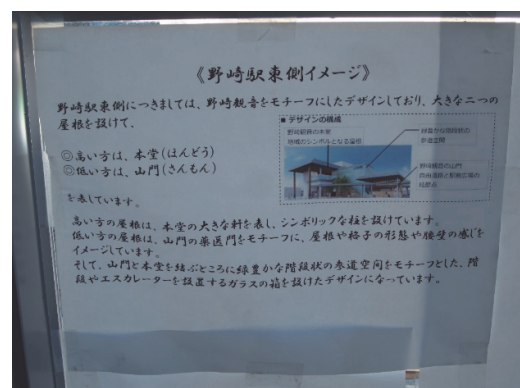 《野崎駅東側イメージ》
野崎駅東側につきましては、野崎観音をモチーフにしたデザインしており、大きな二つの
屋根を設けて、
◎高い方は、本堂(ほんどう)
◎低い方は、山門(さんもん)
を表しています。
■デザインの構成
野崎観音の本堂
地域のシンボルとなる屋根
緑豊かな階段状の
参道空間
野崎観音の山門
自由通路と駅前広場の
結節点
高い方の屋根は、本堂の大きな軒を表し、シンボリックな柱を設けています。
低い方の屋根は、山門の薬医門をモチーフに、屋根や格子の形態や腰壁の感じを
イメージしています。
そして、山門と本堂を結ぶところに緑豊かな階段状の参道空間をモチーフとした、階
段やエスカレーターを設置するガラスの箱を設けたデザインになっています。